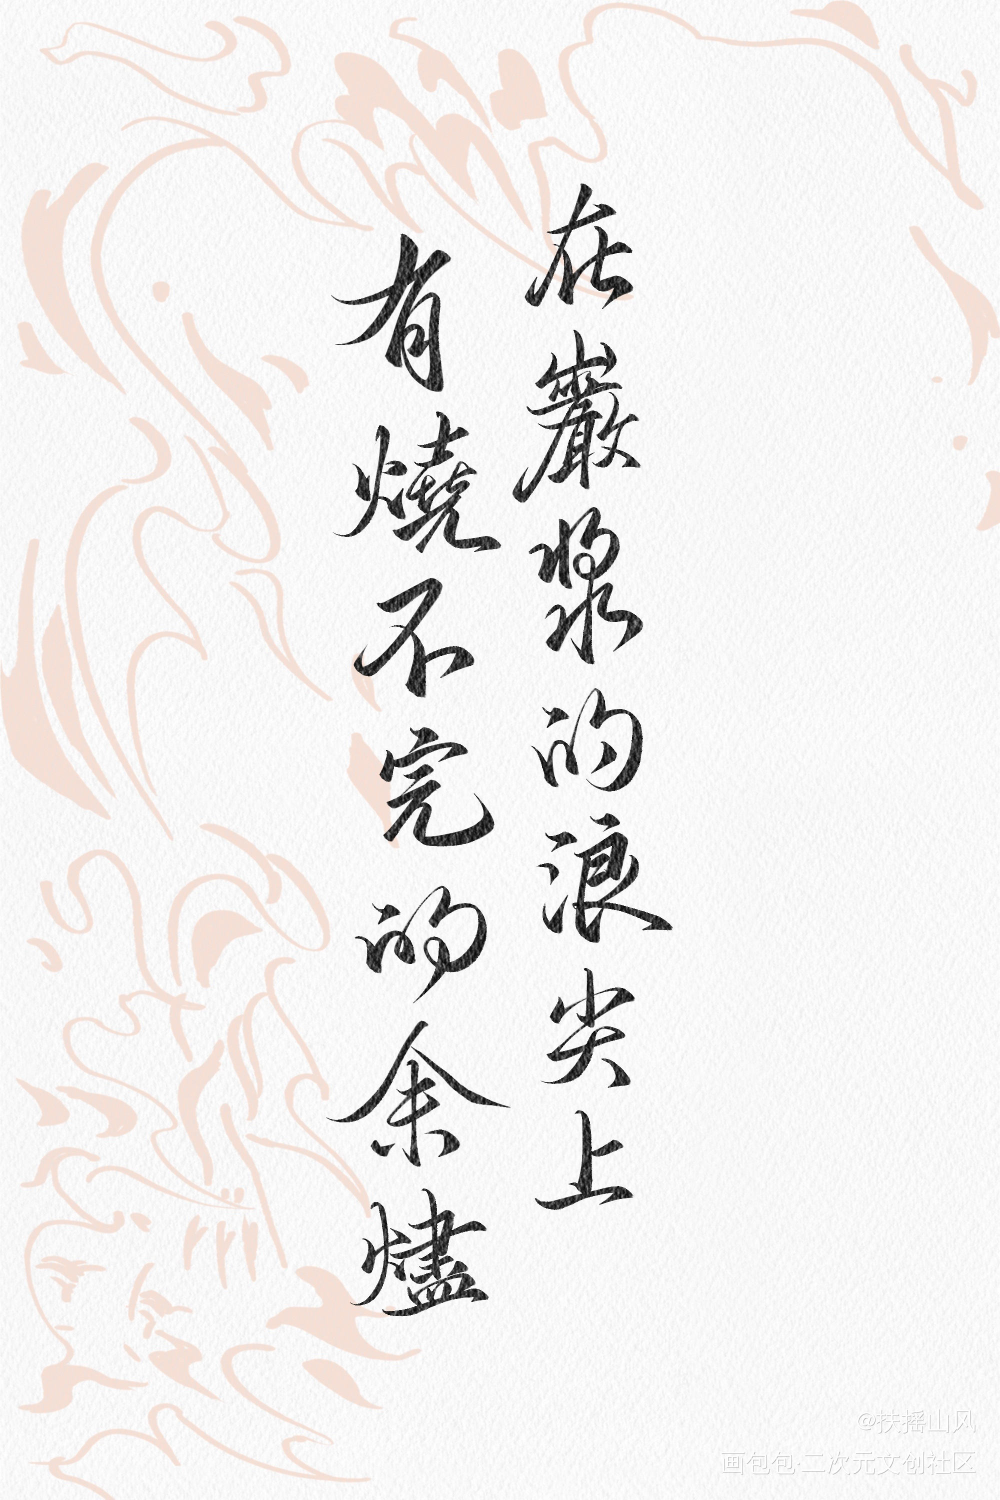 在巖漿的浪尖上
有燒不完的余燼
@扶摇山风
画包包·二次元文创社区